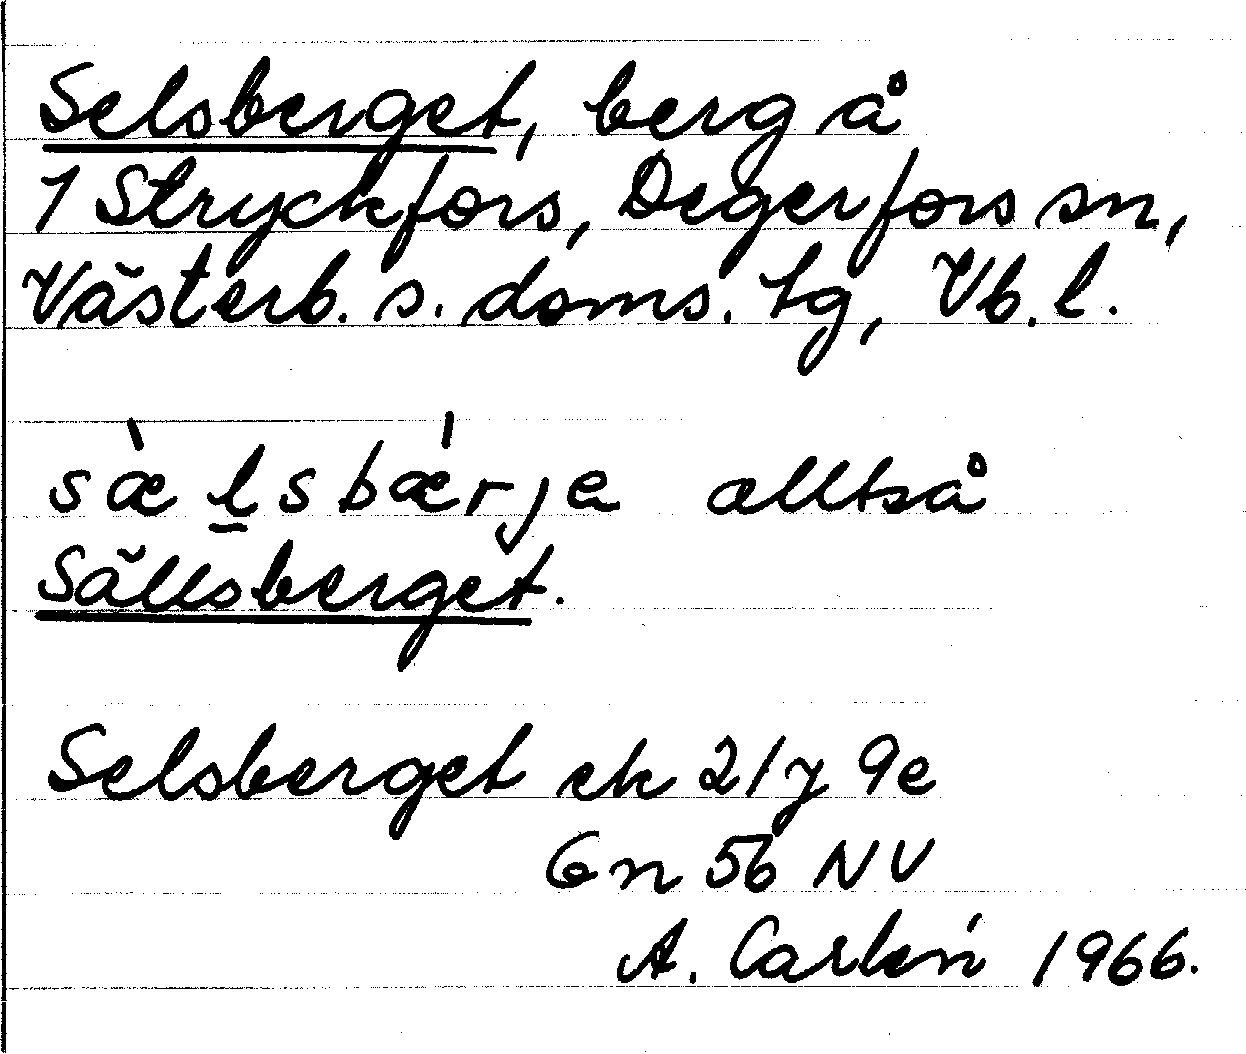 Selsberget, berg å
1 Stryckfors, Degerfors sn,
Västerb. s. doms. tg, Vb. l.
sæ̀l̲sbǽrje alltså
Sällsberget.
Selsberget ek 21 y 9e
Gn 56 NV
A. Carlén 1966.